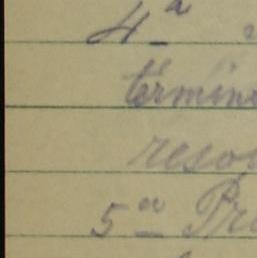 4ª
términ
resol
5ª Pr